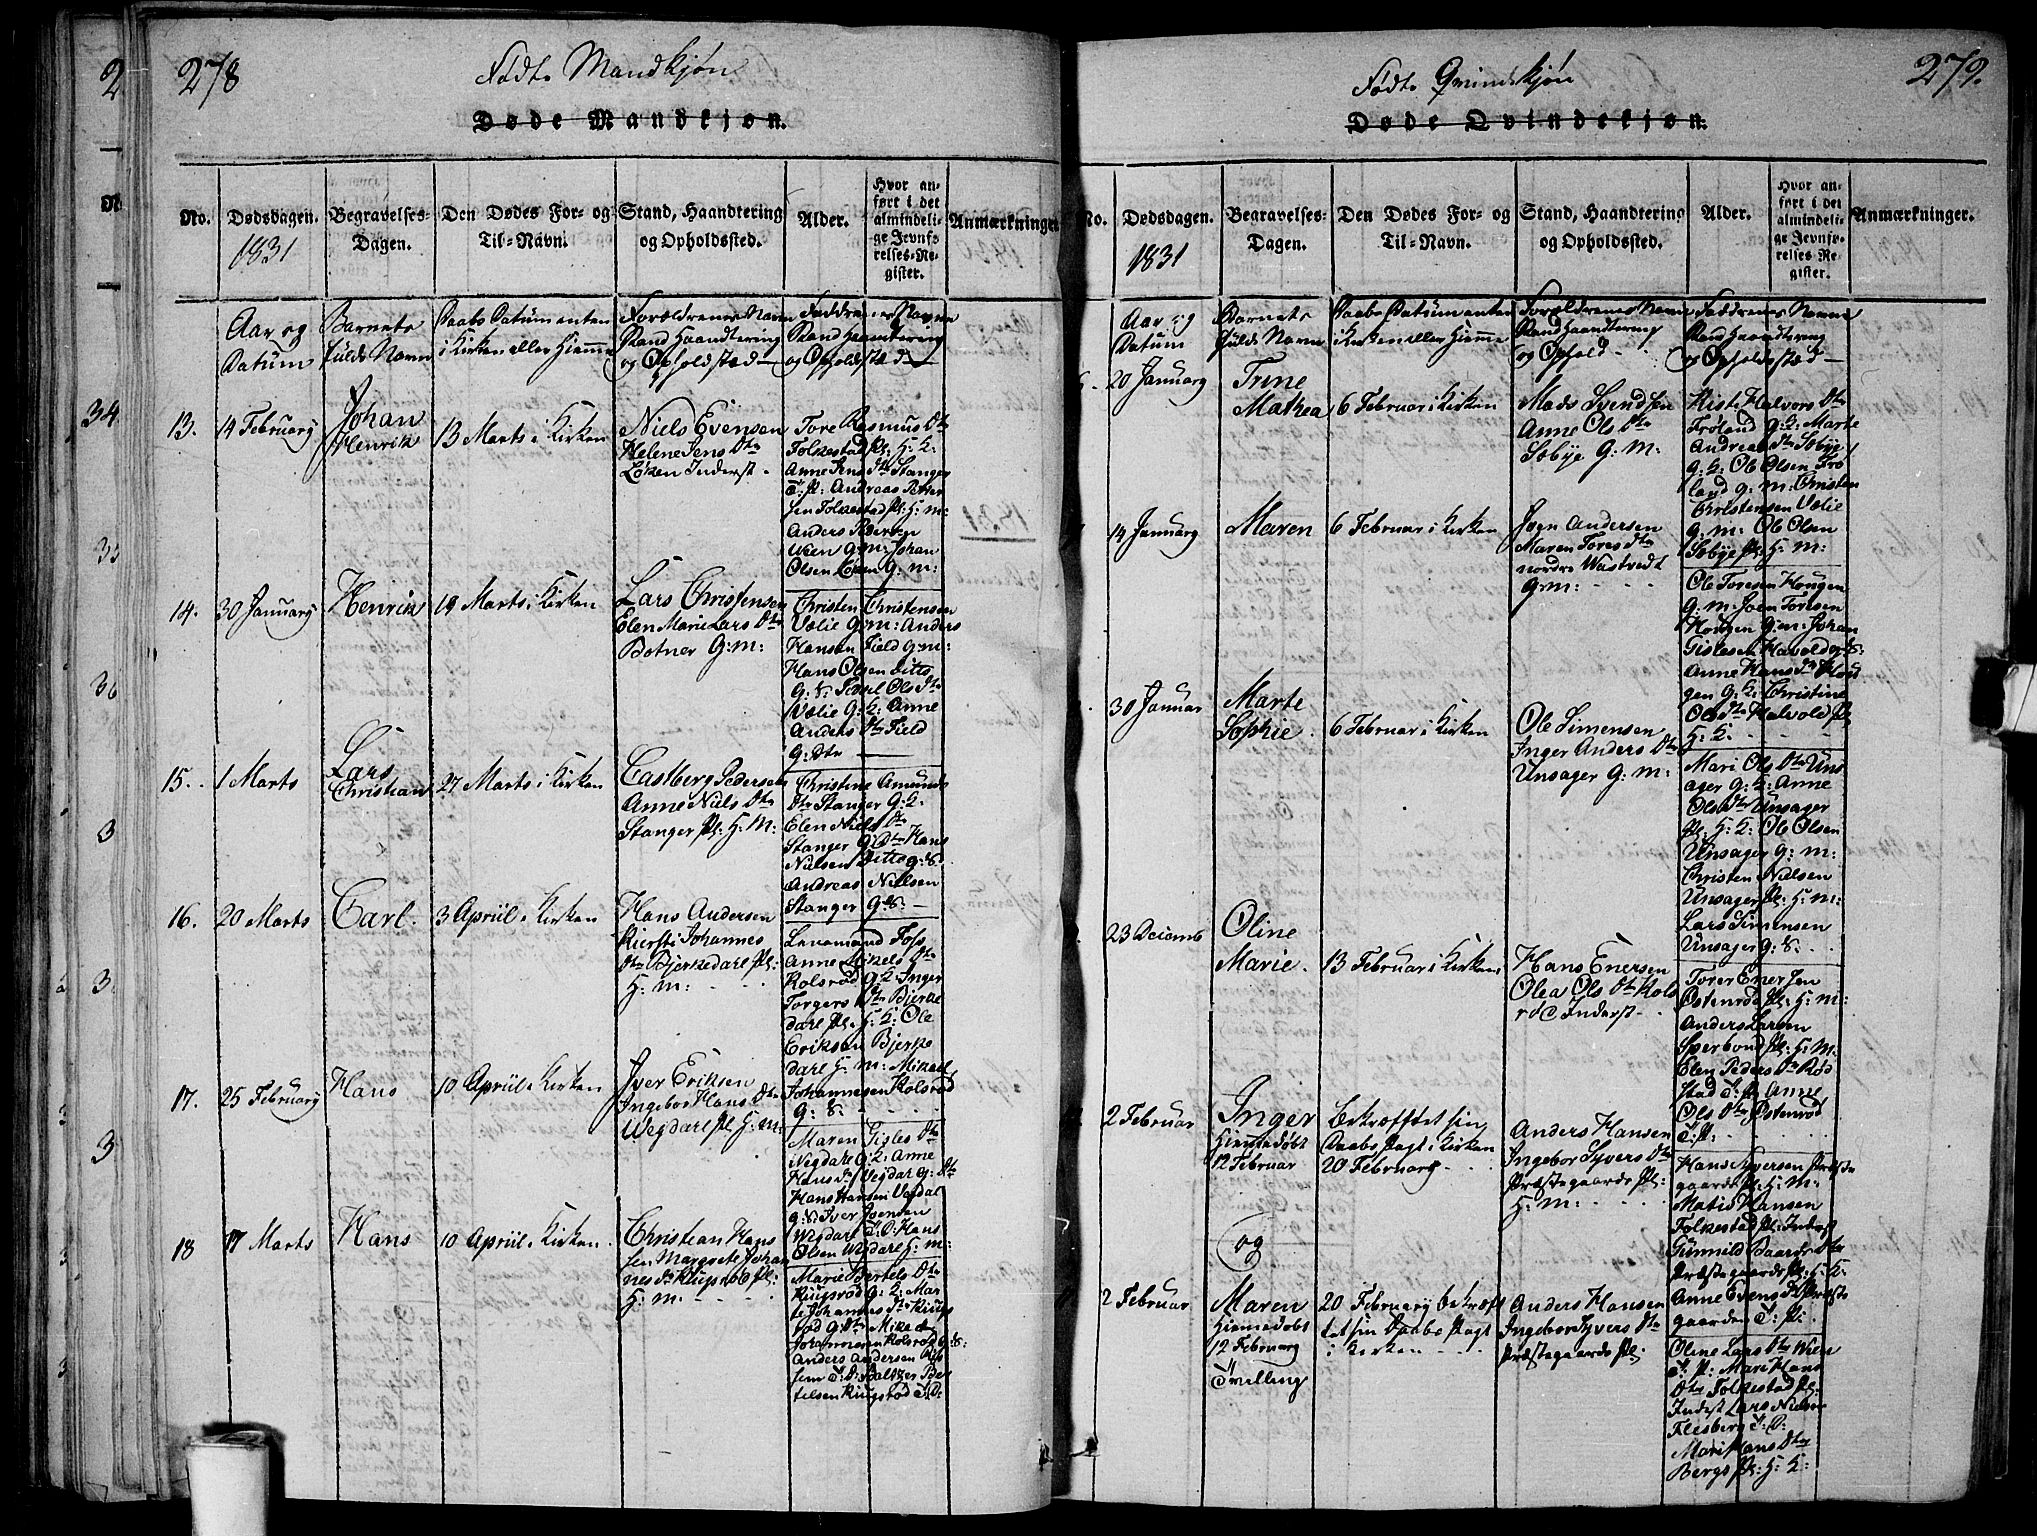 278
Fødte Mandkjøn
Døde Mandkjøn.
No.
Dødsdagen.
1831
Begravelses-
Dagen.
Den Dødes For- og
Til-Navn.
Stand, Haandtering
og Opholdssted.
Alder.
Hvor an-
ført i det
almindeli-
ge Jevnfø-
relses-Re-
gister.
Anmærkninger
Aar og
Datum
Barnets
fulde Navn
Daabs Datum enten
i Kirken eller Hiemme
Forældrenes Navn
Stand Haandtering
og Opholdsted
Faddrenes Navne
Stand Haantering
og Opholdsted
13.
14 February
Johan
Henrik
13 Marts i Kirken
Niels Evensen
Helene Jens Dtr
Løken Inderst
Tore Rasmus Dtr
Folkestad Pl: H: K:
Anne Jens Dtr Stanger
T: P: Andreas Petter
sen Folkestad Pl: H: m:
Anders Pedersen
Wien G: m: Johan
Olsen Løken G: m:
14.
30 January
Henrik
19 Marts i Kirken
Lars Christensen
Elen Marie Lars Dtr
Botner G: m:
Christen Christensen
Vælie G: m: Anders
Hansen Field G: m:
Hans Olsen ditto
G: S. Ols Dtr
Vælie G: K: Anne
Anders Dtr Field
G: Dtr
15.
1 Marts
Lars
Christian
27 Marts i Kirken
Castberg Pedersen
Anne Niels Dtr
Stanger Pl: H: M:
Christine Amunds
Dtr Stanger G: K:
Elen Niels Dtr
Stanger G: Dtr Hans
Nielsen Ditto G: S.
Andreas Nielsen
Stanger G: S.
16.
20 Marts
Carl.
3 Apriil i Kirken
Hans Andersen
Kiersti Johannes
Dtr Bjerkedarl Pl:
H: m:
Lensmand Foss
Anne Mikels Dtr
Kolsrød G: K: Inger
Torgers Dtr Bierke
darl Pl. H: K: Ole
Eriksen Bjerke
darl H: m: Mikael
Johannesen Kolsrød
G: S.
17.
25 February
Hans
10 Apriil i Kirken
Iver Eriksen
Ingebor Hans Dtr
Wegdarl Pl: H: m:
Maren Gisles Dtr
Negdarl G: K: Anne
Hans Dtr Vegdarl G: Dtr
Hans Hansen Vegdal
G: S. Iver
Wegdarl T: D: Hans
Olsen Wegdarl H: m:
18
17 Marts
Hans
10 Apriil i Kirken.
Christian Hans
sen Margrete Johan
nes Dtr Kiugsrød Pl:
H: m.
Marie Bertels Dtr
Kiugsrød G: K: Mar
te Johannes Dtr Kiugs
rød G: Dtr Mikael
Johannesen Kolsrød G: S:
Anders Andersen
T: D: Baltzer Ber
telsen Kiugsrød T: D:
279.
Fødte Qvindekjøn
Døde Qvindekjøn.
No.
Dødsdagen.
1831
Begravelses-
Dagen.
Den Dødes For- og
Til-Navn.
Stand, Haandtering
og Opholdssted.
Alder.
Hvor an-
ført i det
almindeli-
ge Jevnfø-
relses-Re-
gister.
Anmærkninger.
Aar og
Datum
Barnets
fulde Navn
Daabs Datum enten
i Kirken eller Hiemme
Forældrenes Navn
Stand Haandtering
og Ophold
Faddrenes Navne
Stand Haandtering
og Opholdsted
20 January
Trine
Mathea
6 Februar i Kirken
Mads Svendsen
Anne Ols Dtr
Sobye G: M:
Kisti Halvors Dtr
Frøland G: K: Marte
Andreas Dtr Sobye
G: K: Ole Olsen Frø
land G: m: Christen
Christensen Vælie
G: m: Ole Olsen
Sobye Pl: H: m:
14 January
Maren
6 Februar i Kirken
Joen Andersen
Maren Tores Dtr
nordre Wastvedt
G: m:
Ole Toresen Hougen
G: m: Joen Toresen
Hougen G: m: Johan
Gislesen Havold G: S:
Anne Hans Dtr Hou
gen G: K: Christine
Ols Dtr Halvold Pl
H: K.
30 Januar
Marte
Sophie.
6 Februar i Kirken
Ole Simensen
Inger Anders Dtr
Unsager G: m:
Mari Ols Dtr Uns
ager G: K: Anne
Ols Dtr Unsager
Pl: H: K: Ole Olsen
Unsager G: m:
Christen Nielsen
Unsager Pl: H: m:
Lars Simensen
Unsager G: S.
23 Decemb
Oline
Marie.
13 Februar i Kirken
Hans Enersen
Olea Ols Dtr Kols
rød Inderst
Torer Enersen
Østenrød Pl: H: m:
Anders Larsen
Sperbond Pl: H: M:
Elen Peders Dtr Rød
stad T: P: Anne
Ols Dtr Østenrød
T: P:
2 Februar
Inger
Hiemedøbt
12 Februar
bekræfftet sin
Daabs Pagt i Kirken
20 February
Anders Hansen
Ingebor Syvers Dtr
Præstegaards Pl:
H: m:
Hans Syversen Præste
gaards Pl: H: M:
Matis Hansen
Folkestad Pl: Inderst
Gunnild Baards Dtr
Præstegaards Pl: H: K:
Anne Evens Dtr Præste
gaarden T: P:
og
2 Februar
Maren
Hiemedøbt
12 February
Tvilling
20 February bekræf
tet sin Daabs Pagt
i Kirken
Anders Hansen
Ingebor Syvers Dtr
Præstegaards Pl:
Oline Lars Dtr Wien
T: P: Mari Hans
Dtr Folkestad Pl:
Inderst Lars Nielsen
Flesberg T: D:
Mari Hans Dtr
Bergs Pl: H: K: